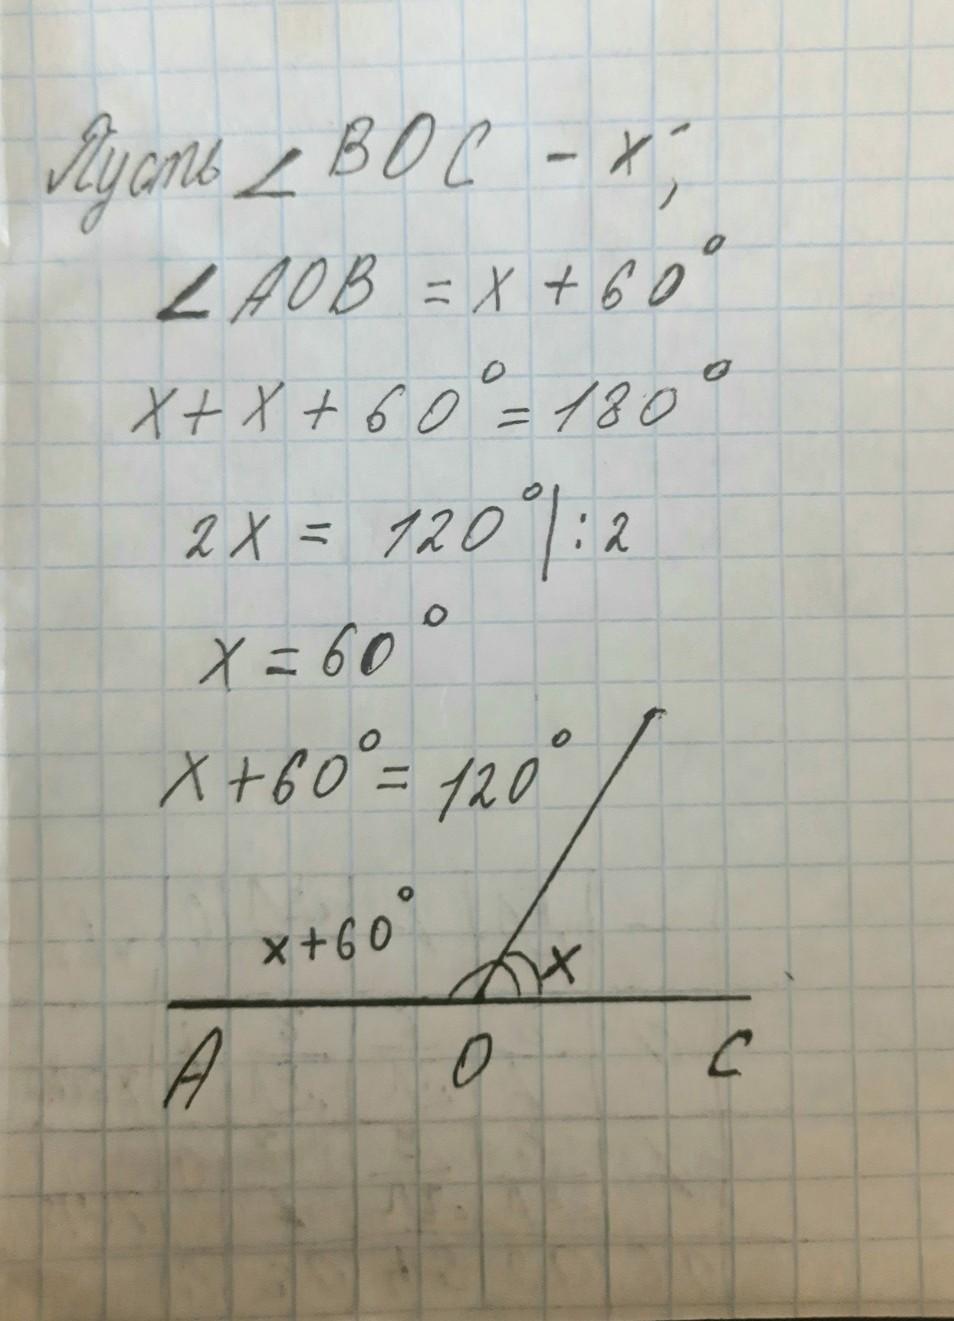 Пусть ∠BOC - x;
∠AOB = x + 60°
x + x + 60° = 180°
2x = 120° | : 2
x = 60°
x + 60° = 120°
x + 60° x
A O C